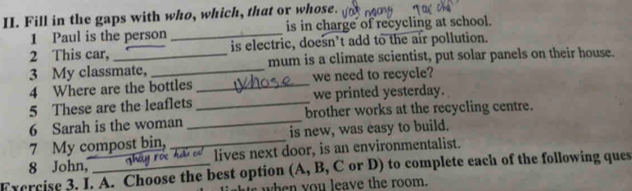 II. Fill in the gaps with who, which, that or whose.
1 Paul is the person ________ is in charge of recycling at school.
2 This car, ________ is electric, doesn't add to the air pollution.
3 My classmate, ________ mum is a climate scientist, put solar panels on their house.
4 Where are the bottles whose we need to recycle?
5 These are the leaflets ________ we printed yesterday.
6 Sarah is the woman ________ brother works at the recycling centre.
7 My compost bin, ________ is new, was easy to build.
8 John, ________ lives next door, is an environmentalist.
Exercise 3. I. A. Choose the best option (A, B, C or D) to complete each of the following ques
when you leave the room.